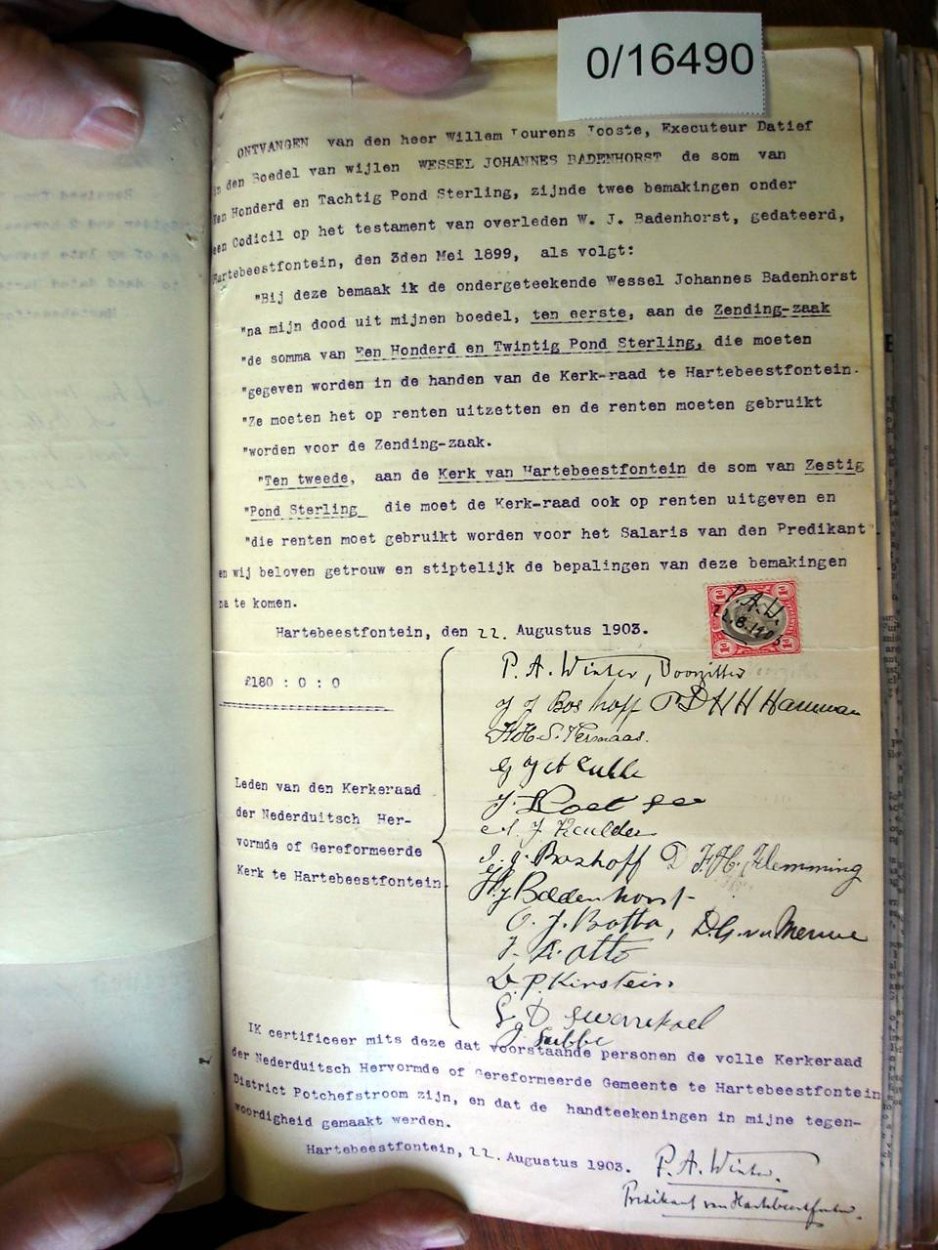 0/16490
ONTVANGEN van den heer Willem Lourens Jooste, Executeur Datief
in den Boedel van wijlen WESSEL JOHANNES BADENHORST de som van
Een Honderd en Tachtig Pond Sterling, zijnde twee bemakingen onder
een Codicil op het testament van overleden W. J. Badenhorst, gedateerd,
Hartebeestfontein, den 3den Mei 1899, als volgt:
"Bij deze bemaak ik de ondergeteekende Wessel Johannes Badenhorst
"na mijn dood uit mijnen boedel, ten eerste, aan de Zending-zaak
"de somma van Een Honderd en Twintig Pond Sterling, die moeten
"gegeven worden in de handen van de Kerk-raad te Hartebeestfontein.
"Ze moeten het op renten uitzetten en de renten moeten gebruikt
"worden voor de Zending-zaak.
"Ten tweede, aan de Kerk van Hartebeestfontein de som van Zestig
"Pond Sterling die moet de Kerk-raad ook op renten uitgeven en
"die renten moet gebruikt worden voor het Salaris van den Predikant
en wij beloven getrouw en stiptelijk de bepalingen van deze bemakingen
na te komen.
P.A.W.
22.8.1903
Hartebeestfontein, den 22. Augustus 1903.
£180 : 0 : 0
P. A. Winter, Voorzitter
J J Boshoff P D H H Hamman
H. S. Vermaas.
J. Koetzee
J Keulder
J. J. Boshoff D F. H. Flemming
H J Badenhorst
C. J. Botha, D.G. v.d Merwe
J. A. Otto
D. P. Kirstein
G. D Swanepoel
J. Lubbe
Leden van den Kerkeraad
der Nederduitsch Her-
vormde of Gereformeerde
Kerk te Hartebeestfontein
IK certificeer mits deze dat voorstaande personen de volle Kerkeraad
der Nederduitsch Hervormde of Gereformeerde Gemeente te Hartebeestfontein
District Potchefstroom zijn, en dat de handteekeningen in mijne tegen-
woordigheid gemaakt werden.
Hartebeestfontein, 22. Augustus 1903.
P. A. Winter.
Predikant van Hartebeestfontein.